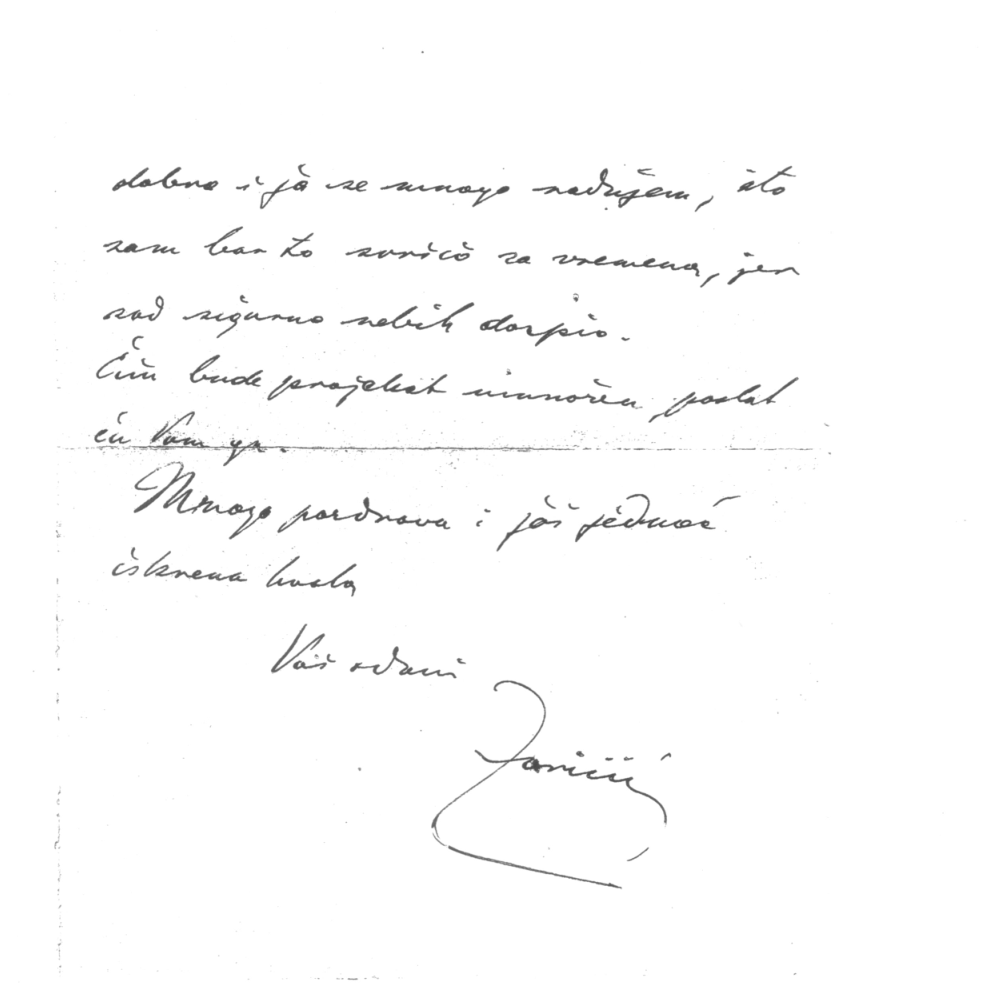 dobno i ja se mnogo radujem, što
sam bar to svršio za vremena, jer
sad sigurno nebih dospio.
Čim bude projekat umnožen, poslat
ću Vam ga.
Mnogo pozdrava i još jednoć
iskrena hvala
Vaš odani